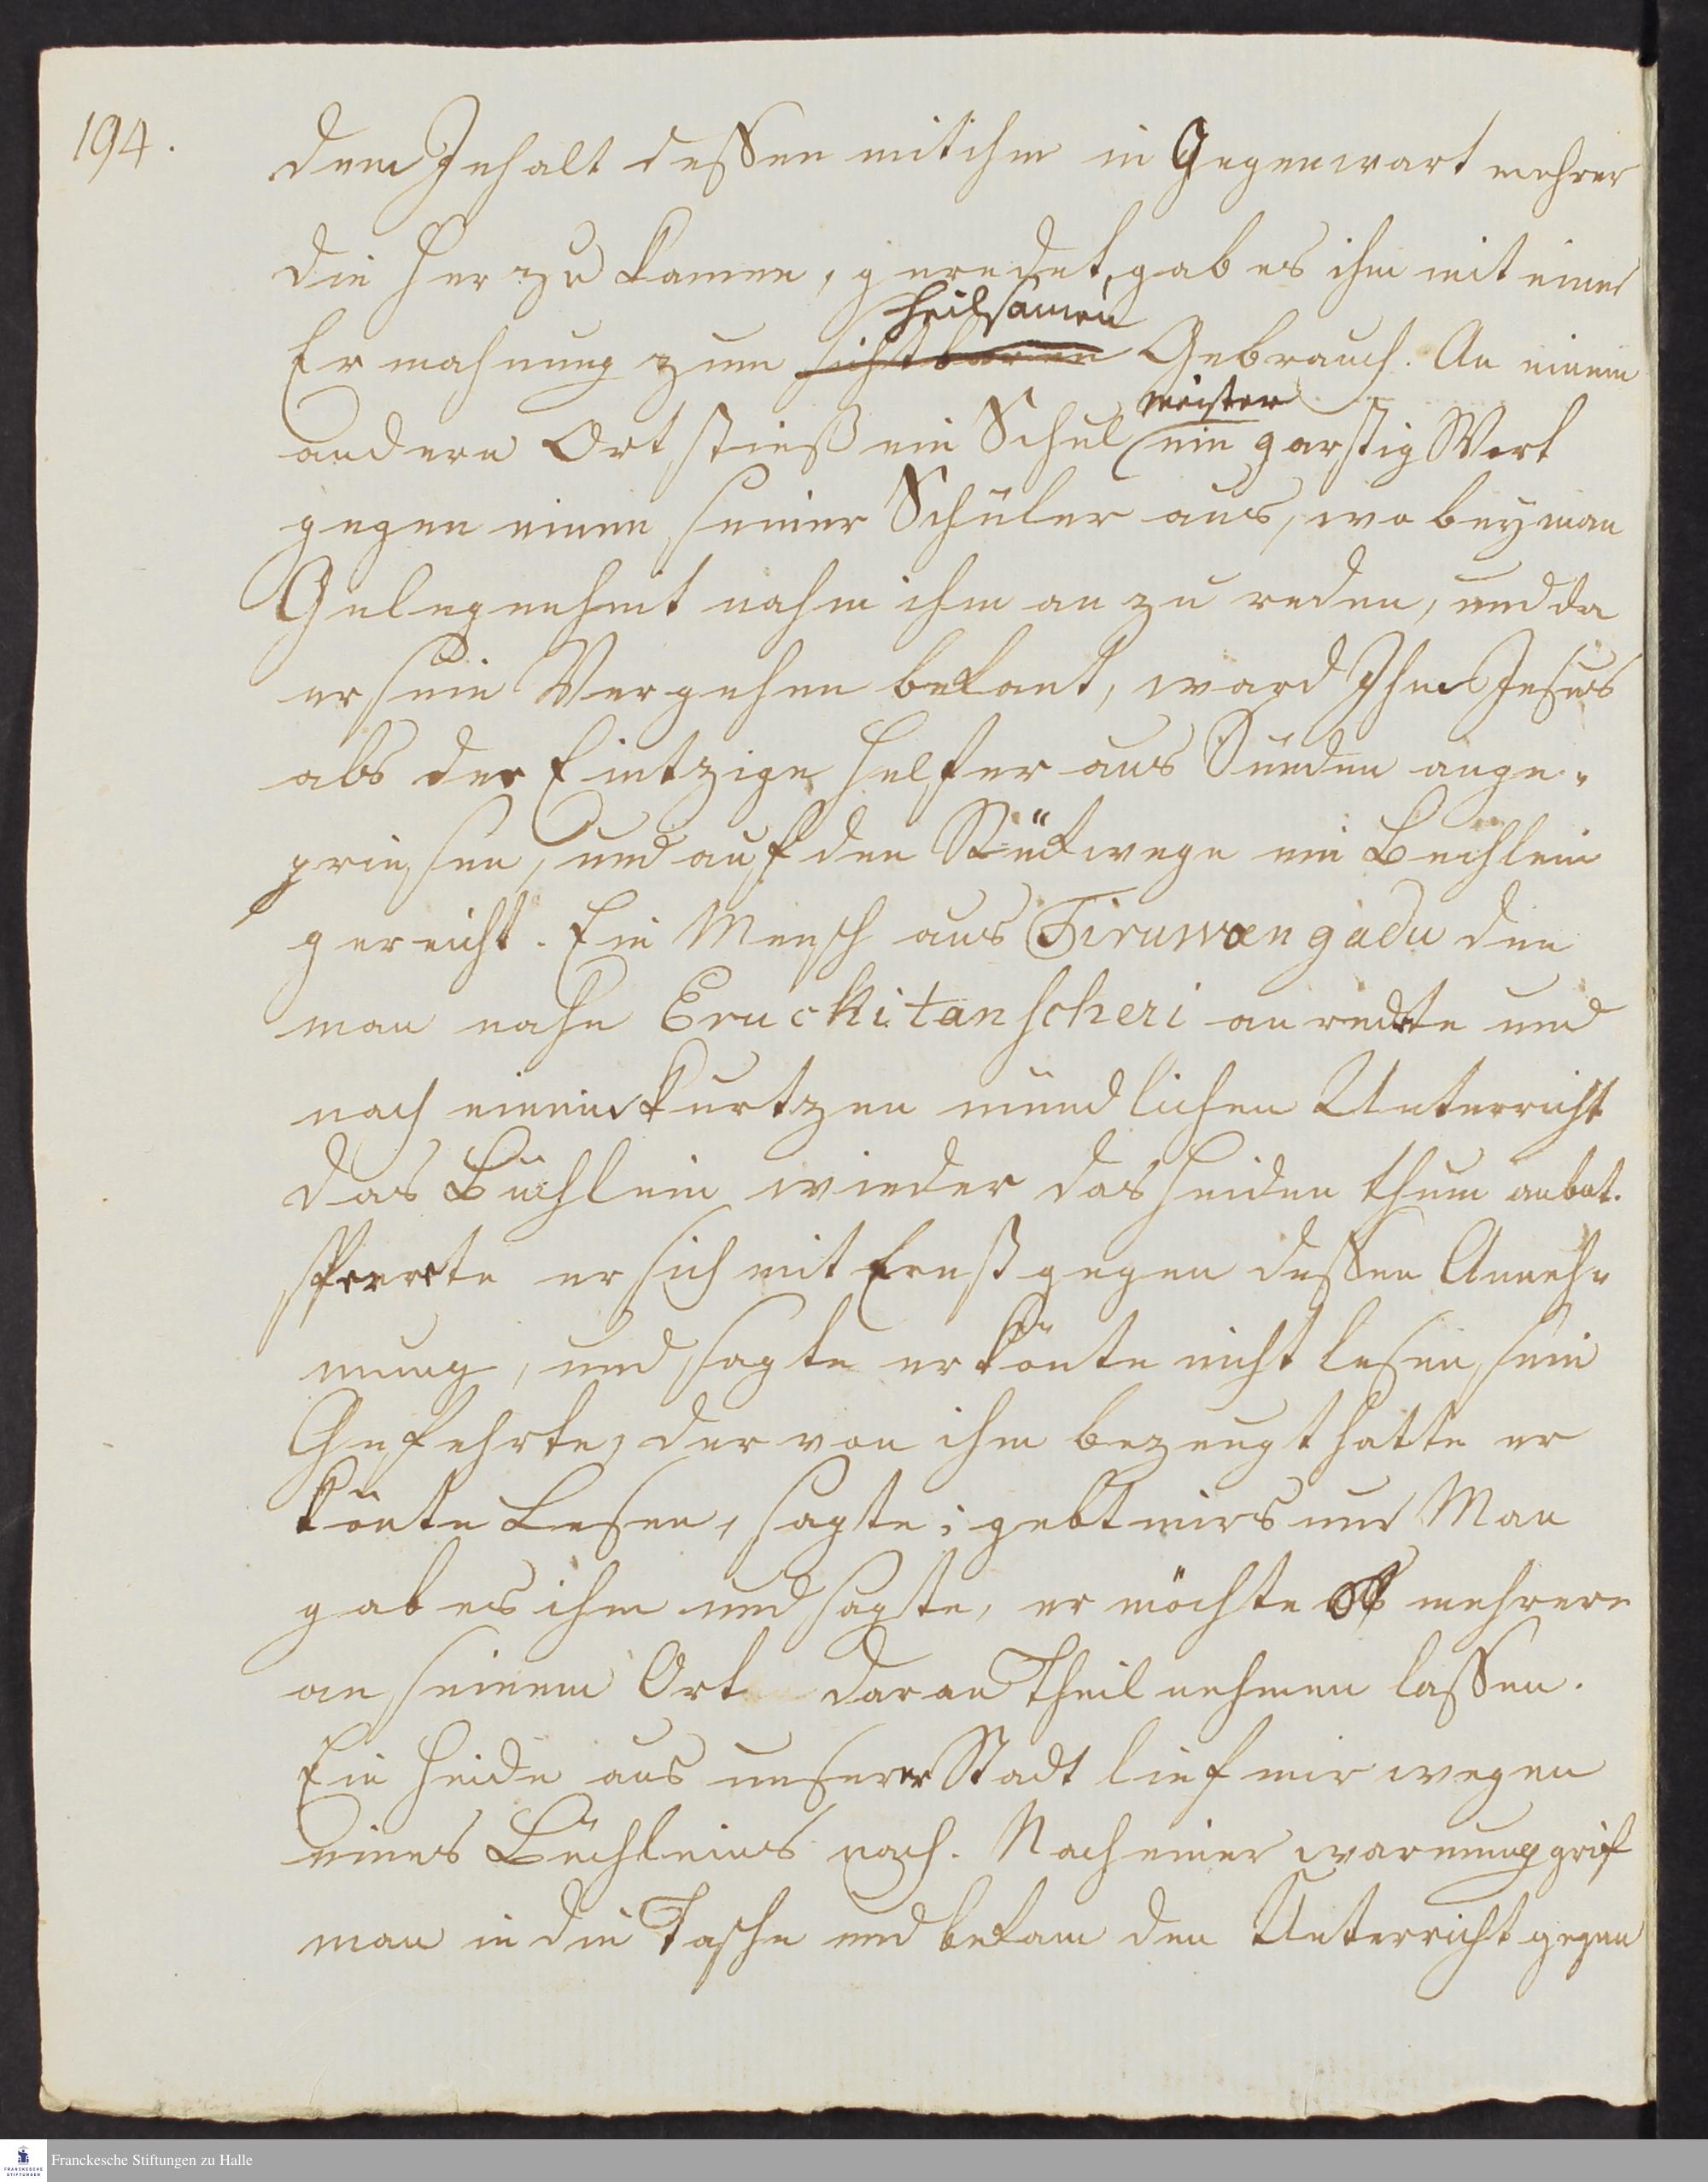 194.
dem Inhalt deßen mit ihm in Gegenwart mehrer
die her zu kamen, geredet, gab es ihm mit einer
heilsamen
Ermahnung zum sichtbaren Gebrauch. An einem
meister
andern Ort, stieß ein Schul ein garstig Wort
gegen einen seiner Schüler aus, wo bey man
Gelegenheit nahm ihm an zu reden, und da
er sein Vergehen bekant, ward Ihm Jesus
als der Eintzige Helfer aus Sünden ange-
priesen, und auf den Rückwege ein Büchlein
gereicht. Ein Mensch aus Tiruwaengadu den
man nahe Eruckitanscheri anredete und
nach einem kurtzen mündlichen Unterricht
das Büchlein wieder das Heiden thum anbot.
sperrete er sich mit Ernst gegen deßen Anneh-
mung, und sagte er könte nicht lesen, sein
Gefehrte, der von ihm bezeugt hatte er
könte Lesen, sagte: gebt mirs und Man
gab es ihm und sagte, er möchte mehrere
an seinem Ort daran Theil nehmen laßen.
Ein Heide aus unserer Stadt lief mir wegen
eines Büchleins nach. Nach einer warnung grif
man in die Tasche und bekam den Unterricht gegen
Franckesche Stiftungen zu Halle